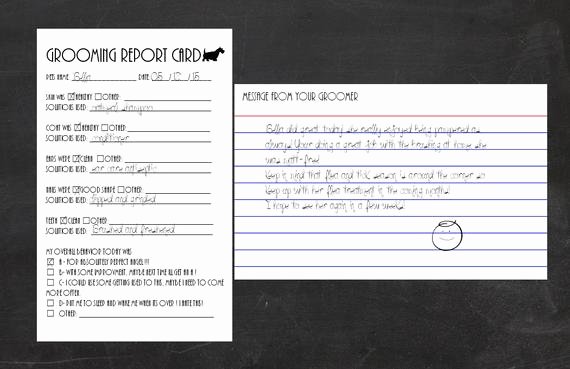 GROOMING REPORT CARD
DOG NAME Bella DATE 05 / 12 / 15
SKIN WAS ☒HEALTHY ☐OTHER:
SOLUTIONS USED: oatmeal shampoo
COAT WAS ☒HEALTHY ☐OTHER:
SOLUTIONS USED: conditioner
EARS WERE ☒CLEAN ☐OTHER:
SOLUTIONS USED: ear care antiseptic
NAILS WERE ☒GOOD SHAPE ☐OTHER:
SOLUTIONS USED: clipped and grinded
TEETH ☒CLEAN ☐OTHER:
SOLUTIONS USED: Brushed and freshened
MY OVERALL BEHAVIOR TODAY WAS:
☒ A - FOR ABSOLUTELY PERFECT ANGEL!!!!
☐ B- WITH SOME IMPROVMENT, MAYBE NEXT TIME ILL GET AN A!
☐ C- I COULD USE SOME GETTING USED TO THIS, MAYBE I NEED TO COME
MORE OFTEN.
☐ D- PUT ME TO SLEEP AND WAKE ME WHEN ITS OVER! I HATE THIS!
☐ OTHER:
MESSAGE FROM YOUR GROOMER
Bella did great today! she really enjoyed being pampered as
always! Your doing a great job with the brushing at home, she
was matt-free!
Keep in mind that flea and tick season is around the corner so
Keep up with her flea treatment in the coming months!
I hope to see her again in a few weeks!